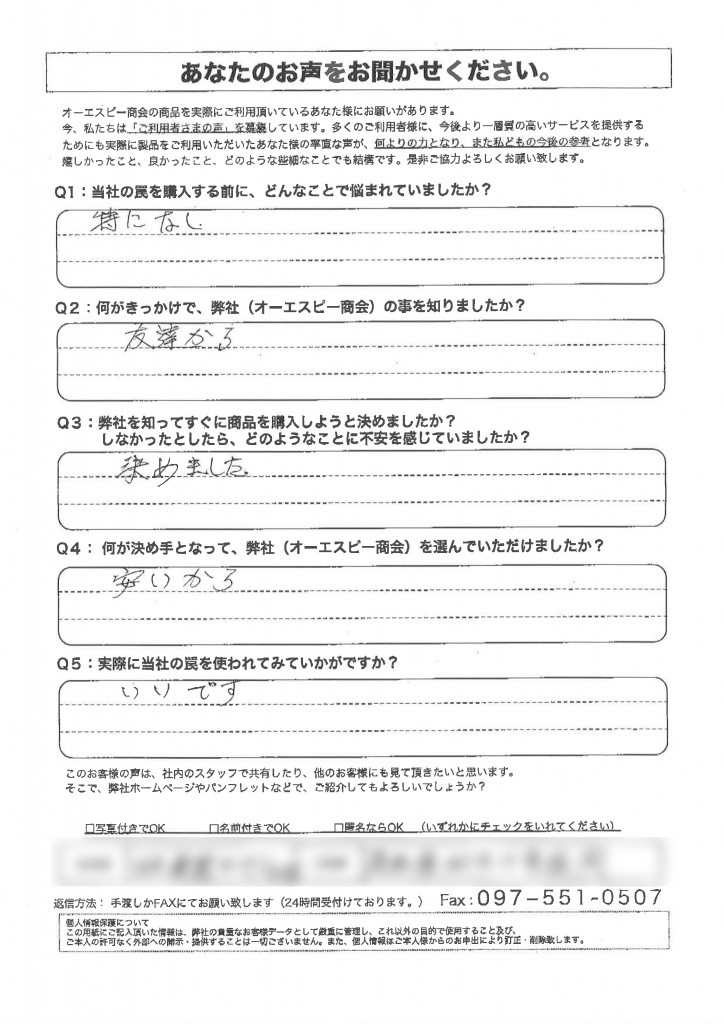 あなたのお声をお聞かせください。
オーエスピー商会の商品を実際にご利用頂いているあなた様にお願いがあります。
今、私たちは「ご利用者さまの声」を募集しています。多くのご利用者様に、今後より一層質の高いサービスを提供する
ためにも実際に製品をご利用いただいたあなた様の率直な声が、何よりの力となり、また私どもの今後の参考となります。
嬉しかったこと、良かったこと、どのような些細なことでも結構です。是非ご協力よろしくお願い致します。
Q1:当社の罠を購入する前に、どんなことで悩まれていましたか?
特になし
Q2:何がきっかけで、弊社(オーエスピー商会)の事を知りましたか?
友達から
Q3:弊社を知ってすぐに商品を購入しようと決めましたか?
しなかったとしたら、どのようなことに不安を感じていましたか?
決めました。
Q4: 何が決め手となって、弊社(オーエスピー商会)を選んでいただけましたか?
安いから
Q5:実際に当社の罠を使われてみていかがですか?
いいです
このお客様の声は、社内のスタッフで共有したり、他のお客様にも見て頂きたいと思います。
そこで、弊社ホームページやパンフレットなどで、ご紹介してもよろしいでしょうか?
□写真付きでOK □名前付きでOK □匿名ならOK (いずれかにチェックをいれてください)
返信方法: 手渡しかFAXにてお願い致します(24時間受付ております。) Fax:097-551-0507
個人情報保護について
この用紙にご記入頂いた情報は、弊社の貴重なお客様データとして厳重に管理し、これ以外の目的で使用すること及び、
ご本人の許可なく外部への開示・提供することは一切ございません。また、個人情報はご本人様からのお申出により訂正・削除致します。